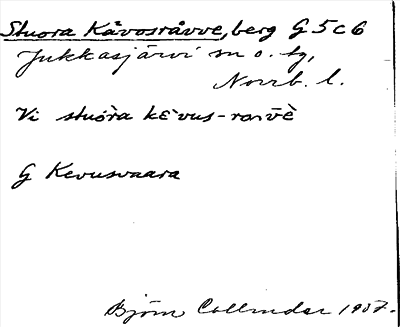 Stuora Kåvosråvve, berg G 5 c 6
Jukkasjärvi sn o. tg,
Norrb. l.
Vi stuo̍ra kɛ̄vus-
G Kevusvaara
Björn Collinder 1907.